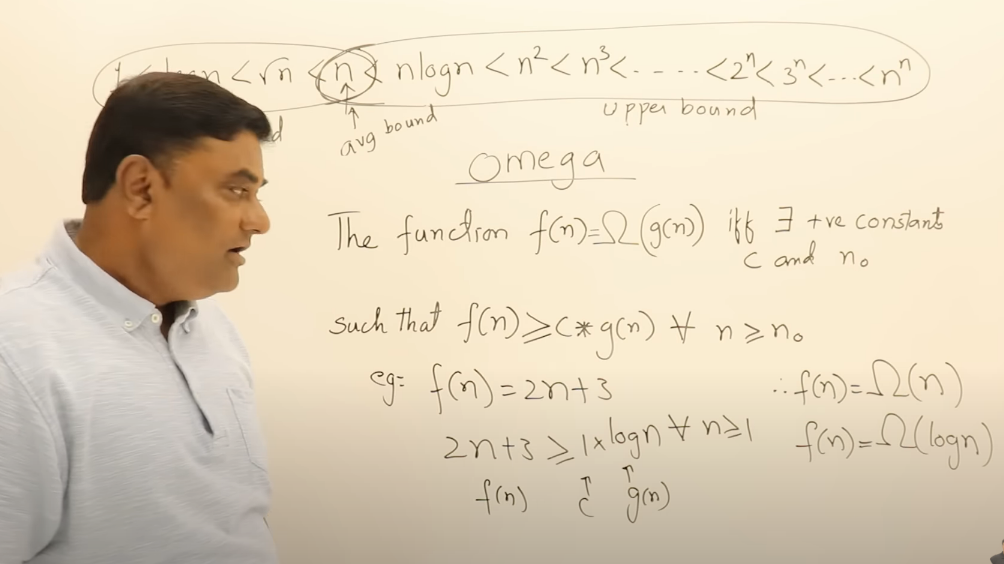 < √n < n < nlogn < n² < n³ < - - - - < 2ⁿ < 3ⁿ < --- < nⁿ
avg bound
upper bound
Omega
The function f(n)=Ω(g(n)) iff ∃ +ve constants
c and n₀
such that f(n) ≥ c* g(n) ∀ n ≥ n₀
eg= f(n) = 2n+3
∴ f(n)=Ω(n)
2n+3 ≥ 1×logn ∀ n≥1
f(n)=Ω(logn)
f(n) c g(n)